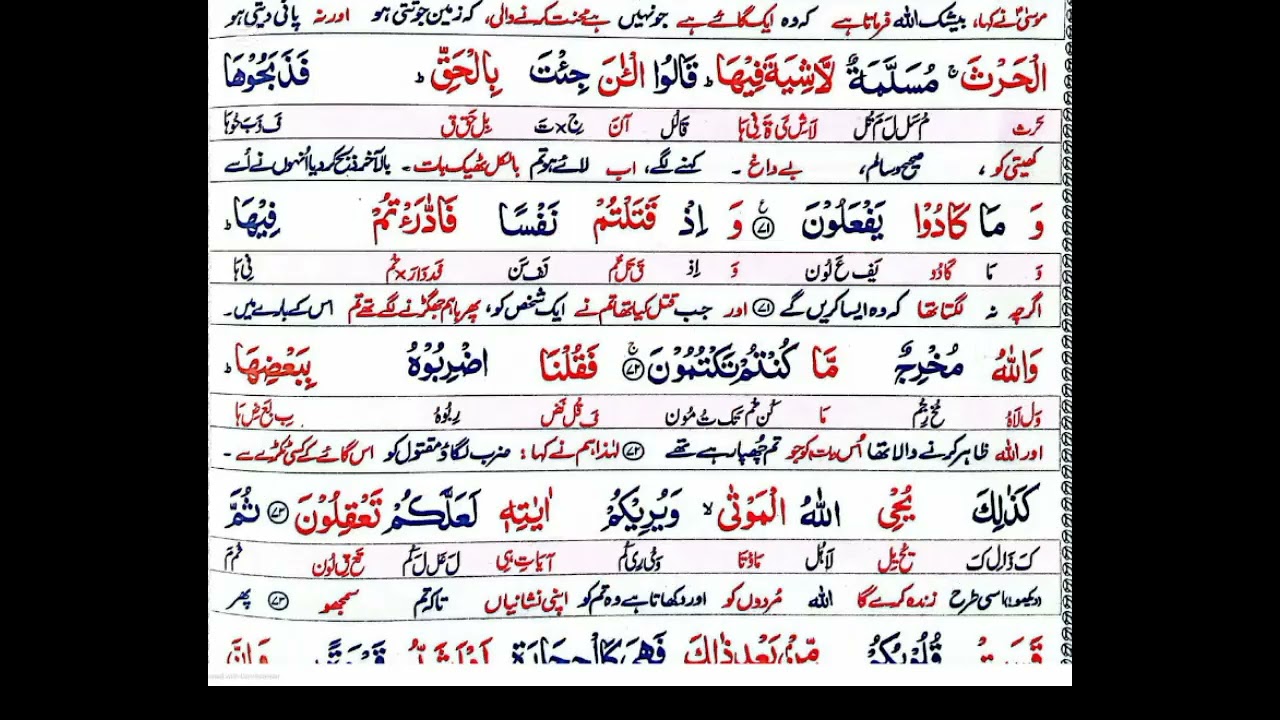 موسیٰ نے کہا، بیشک اللہ فرماتا ہے کہ وہ ایک گائے ہے جو نہیں ہے محنت کرنے والی، کہ زمین جوتتی ہو اور نہ پانی دیتی ہو
الْحَرْثَ ۚ مُسَلَّمَةٌ لَّا شِيَةَ فِيْهَا ؕ قَالُوا الْـٰٔنَ جِئْتَ بِالْحَقِّ ؕ فَذَبَحُوْهَا
حَرث مُ سَل لَ مَ تُل لَا شِ یَ ۃَ فِی ہَا قَالُل آنَ جِءْ تَ بِل حَق قِ فَ ذَ بَ حُو ہَا
کھیتی کو، صحیح و سالم، بے داغ ۔ کہنے لگے، اب لائے ہو تم بالکل ٹھیک بات ۔ بالآخر ذبح کر دیا انہوں نے اُسے
وَ مَا كَادُوْا يَفْعَلُوْنَ ۧ ﴿۷۱﴾ وَ اِذْ قَتَلْتُمْ نَفْسًا فَادّٰرَءْتُمْ فِيْهَا ؕ
وَ مَا کَادُو یَف عَ لُون وَ اِذ قَ تَل تُم نَف سَن فَد دَارَءْ تُم فِی ہَا
اگرچہ نہ لگتا تھا کہ وہ ایسا کریں گے ﴿۷۱﴾ اور جب قتل کیا تھا تم نے ایک شخص کو، پھر باہم جھگڑنے لگے تھے تم اس کے بارے میں۔
وَاللّٰهُ مُخْرِجٌ مَّا كُنْتُمْ تَكْتُمُوْنَ ۚ ﴿۷۲﴾ فَقُلْنَا اضْرِبُوْهُ بِبَعْضِهَا ؕ
وَل لَاہُ مُخ رِجُم مَا کُن تُم تَک تُ مُون فَ قُل نَض رِبُوہُ بِ بَع ضِ ہَا
اور اللہ ظاہر کرنے والا تھا اُس بات کو جو تم چھپا رہے تھے ﴿۷۲﴾ لہٰذا ہم نے کہا: ضرب لگاؤ مقتول کو اس گائے کے کسی ٹکڑے سے ۔
كَذٰلِكَ يُحْيِ اللّٰهُ الْمَوْتٰى ۙ وَيُرِيْكُمْ اٰيٰتِهٖ لَعَلَّكُمْ تَعْقِلُوْنَ ﴿۷۳﴾ ثُمَّ
کَ ذَالِ کَ یُح یِل لَاہُل مَوتَا وَ یُ رِی کُم آیَاتِ ہِی لَ عَل لَ کُم تَع قِ لُون ثُم مَ
(دیکھو!) اسی طرح زندہ کرے گا اللہ مُردوں کو اور دکھاتا ہے وہ تم کو اپنی نشانیاں تاکہ تم سمجھو ﴿۷۳﴾ پھر
قَسَتْ قُلُوْبُكُمْ مِّنْۢ بَعْدِ ذٰلِكَ فَهِىَ كَالْحِجَارَةِ اَوْ اَشَدُّ قَسْوَةً ؕ وَاِنَّ